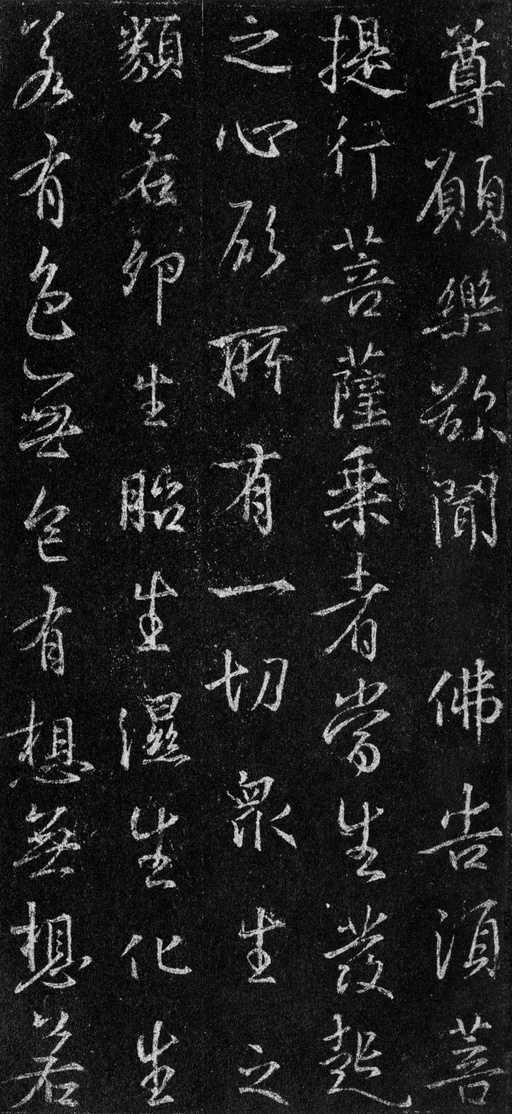 尊願樂欲聞 佛告須菩
提行菩薩乘者當生發起
之心所有一切眾生之
類若卵生胎生濕生化生
若有色無色有想無想若